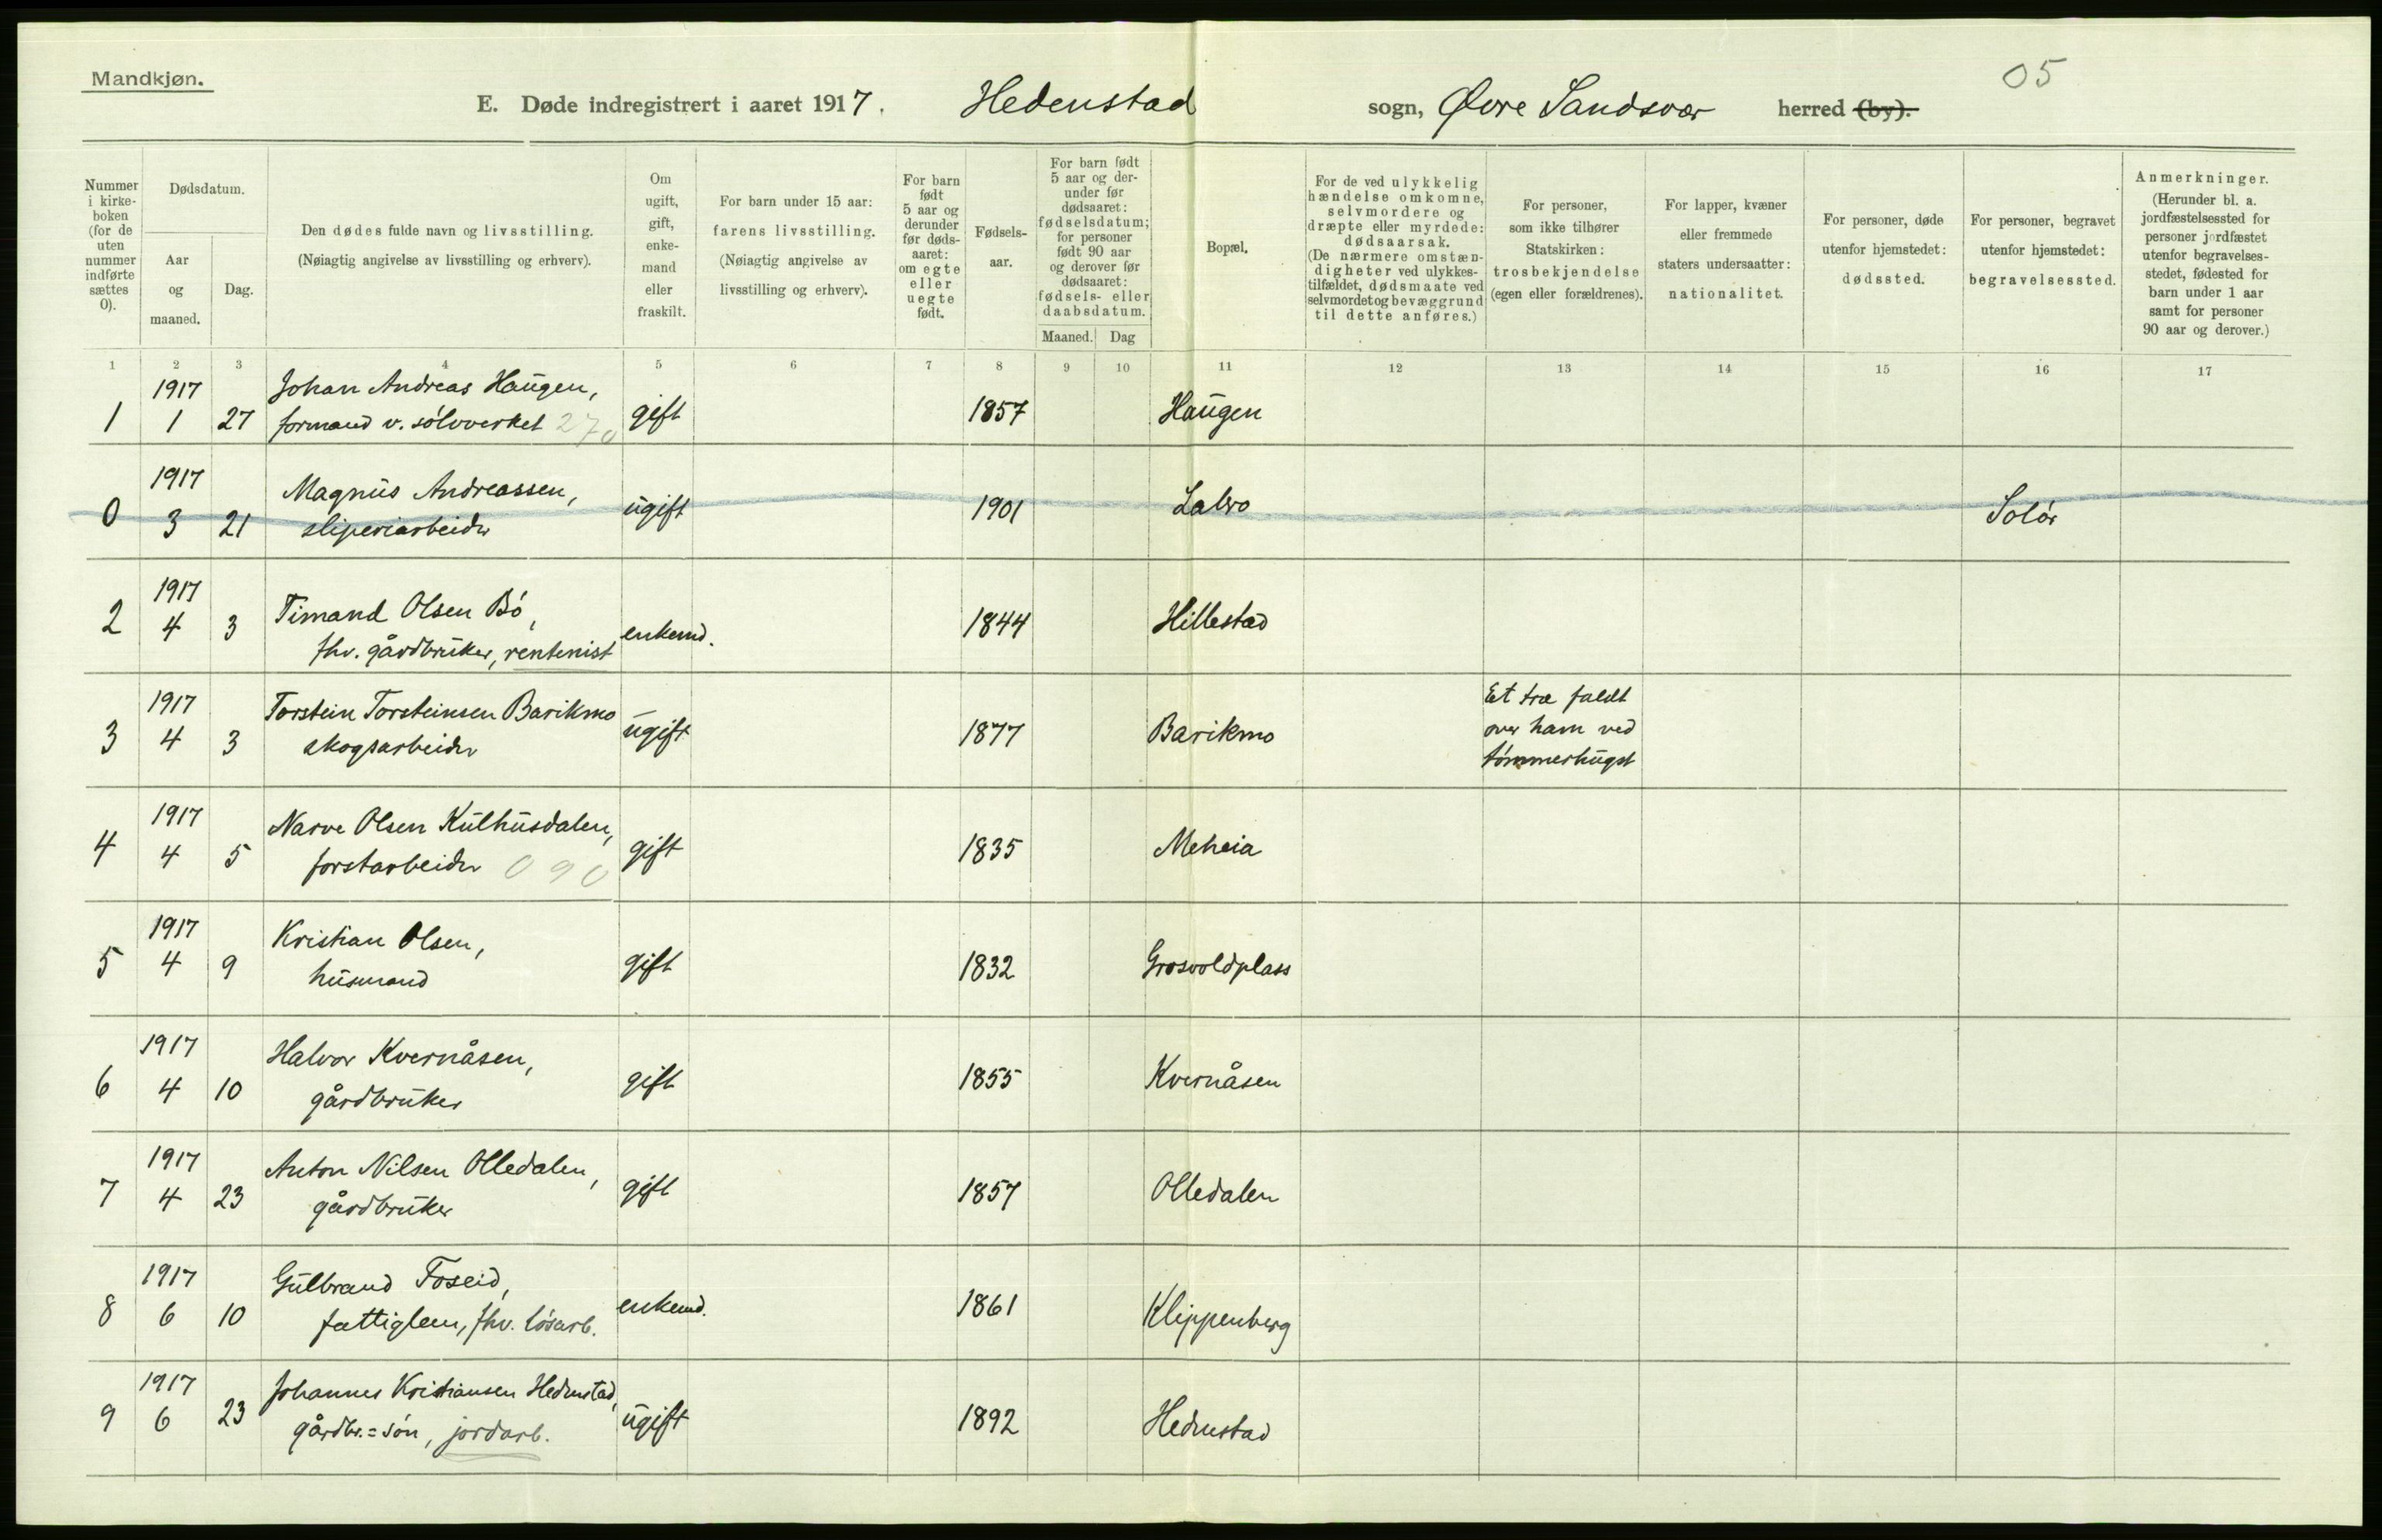 Mandkjøn.
05
E. Døde indregistrert i aaret 1917. Hedenstad sogn, Øvre Sandsvær herred (by).
Nummer i kirkeboken (for de uten nummer indførte sættes 0).
Dødsdatum.
Aar og maaned.
Dag.
Den dødes fulde navn og livsstilling. (Nøiagtig angivelse av livsstilling og erhverv).
Om ugift, gift, enkemand eller fraskilt.
For barn under 15 aar: farens livsstilling. (Nøiagtig angivelse av livsstilling og erhverv).
For barn født 5 aar og derunder før dødsaaret: om egte eller uegte født.
Fødselsaar.
For barn født 5 aar og derunder før dødsaaret: fødselsdatum; for personer født 90 aar og derover før dødsaaret: fødsels- eller daabsdatum.
Maaned. Dag
Bopæl.
For de ved ulykkelig hændelse omkomne, selvmordere og dræpte eller myrdede: dødsaarsak. (De nærmere omstændigheter ved ulykkestilfældet, dødsmaate ved selvmordet og bevæggrund til dette anføres.)
For personer, som ikke tilhører Statskirken: trosbekjendelse (egen eller forældrenes).
For lapper, kvæner eller fremmede staters undersaatter: nationalitet.
For personer, døde utenfor hjemstedet: dødssted.
For personer, begravet utenfor hjemstedet: begravelsessted.
Anmerkninger. (Herunder bl. a. jordfæstelsessted for personer jordfæstet utenfor begravelsesstedet, fødested for barn under 1 aar samt for personer 90 aar og derover.)
1 2 3 4 5 6 7 8 9 10 11 12 13 14 15 16 17
1917 Johan Andreas Haugen,
1 1 27 formand v. sølvverket 270 gift 1857 Haugen
1917 Magnus Andreassen,
0 3 21 sliperiarbeider ugift 1901 Labro Solør
1917 Timand Olsen Bø,
2 4 3 fhv. gårdbruker, rentenist enkemd. 1844 Hillestad
1917 Torstein Torsteinsen Barikmo
3 4 3 skogsarbeider ugift 1877 Barikmo Et træ faldt
over ham ved
tømmerhugst
1917 Narve Olsen Kulhusdalen,
4 4 5 forstarbeider 090 gift 1835 Meheia
1917 Kristian Olsen,
5 4 9 husmand gift 1832 Grosvoldplass
1917 Halvor Kvernåsen,
6 4 10 gårdbruker gift 1855 Kvernåsen
1917 Anton Nilsen Olledalen,
7 4 23 gårdbruker gift 1857 Olledalen
1917 Gulbrand Foseid,
8 6 10 fattiglem, fhv. løsarb. enkemd. 1861 Klippenberg
1917 Johannes Kristiansen Hedenstad,
9 6 23 gårdbr.=søn, jordarb. ugift 1892 Hedenstad